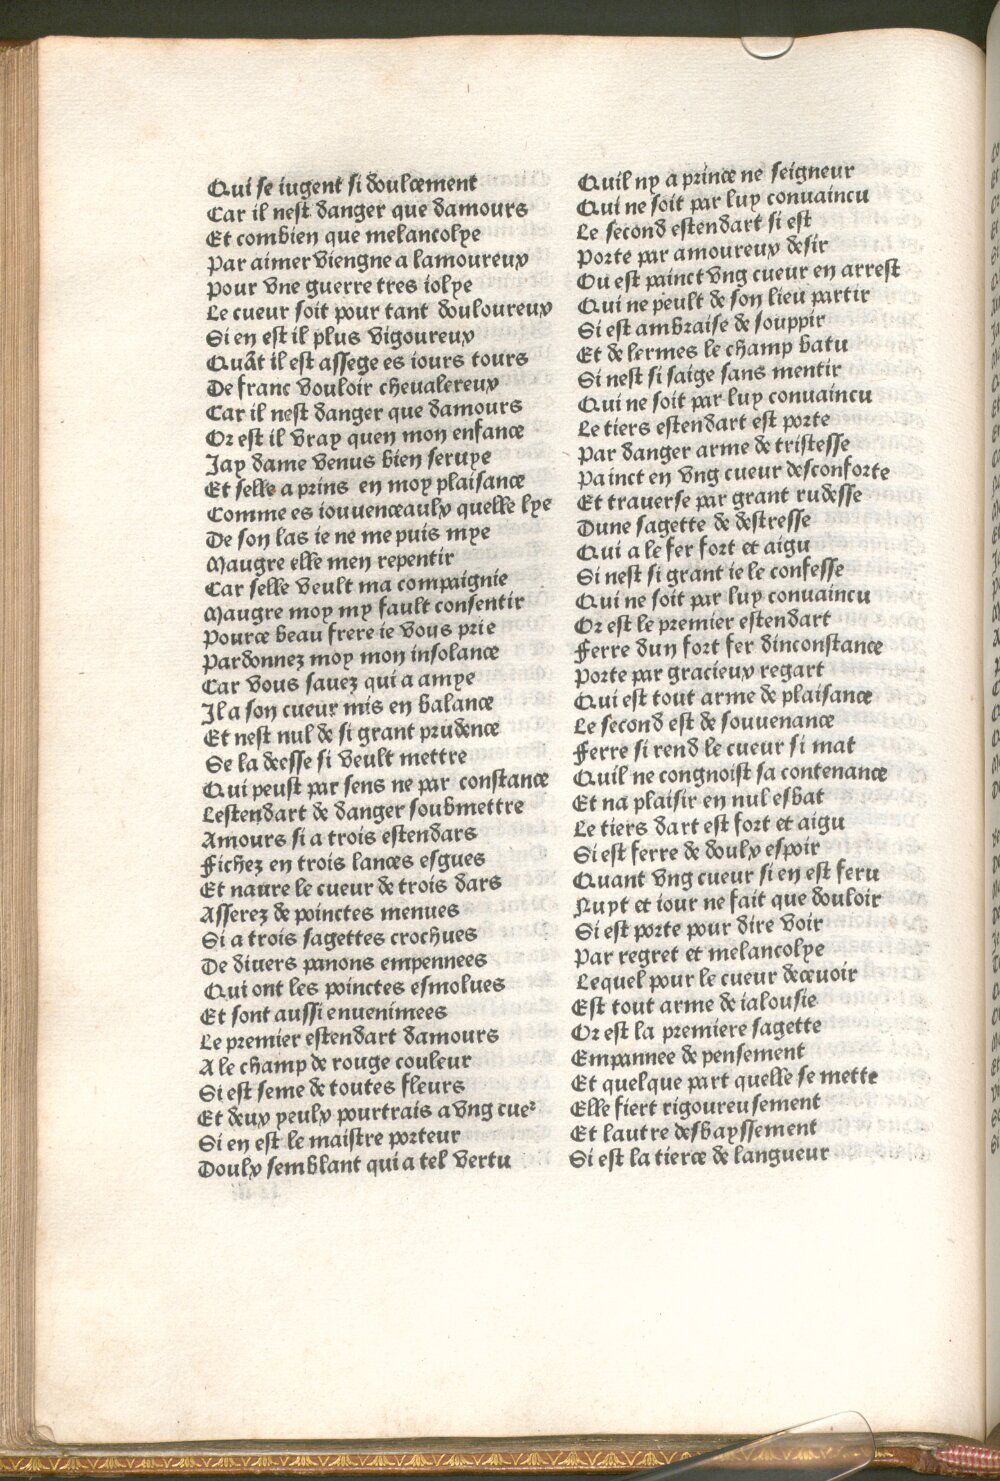 Qui se iugent si doulcement
Car il nest danger que damours
Et combien que melancolye
Par aimer viengne a lamoureux
Pour vne guerre tres iolye
Le cueur soit pour tant douloureux
Si en est il plus vigoureux
Quāt il est assege es iours tours
De franc vouloir chevalereux
Car il nest danger que damours
Or est il vray quen mon enfance
Jay dame venus bien seruye
Et selle a prins en moy plaisance
Comme es iouuenceaulx quelle lye
De son las ie ne me puis mye
Maugre elle men repentir
Car selle veult ma compaignie
Maugre moy my fault consentir
Pource beau frere ie vous prie
Pardonnez moy mon insolance
Car vous sauez qui a amye
Il a son cueur mis en balance
Et nest nul de si grant prudence
Se la deesse si veult mettre
Qui peust par sens ne par constance
Lestendart de danger soubmettre
Amours si a trois estendars
Fichez en trois lances esgues
Et naure le cueur de trois dars
Asserez de poinctes menues
Si a trois sagettes crochues
De diuers panons empennees
Qui ont les poinctes esmolues
Et sont aussi enuenimees
Le premier estendart damours
A le champ de rouge couleur
Si est seme de toutes fleurs
Et deux yeulx pourtrais a vng cueᷣ
Si en est le maistre porteur
Doulx semblant qui a tel vertu
Quil ny a prince ne seigneur
Qui ne soit par luy conuaincu
Le second estendart si est
Porte par amoureux desir
Ou est painct vng cueur en arrest
Qui ne peult de son lieu partir
Si est ambraise de souppir
Et de lermes le champ batu
Si nest si saige sans mentir
Qui ne soit par luy conuaincu
Le tiers estendart est porte
Par danger arme de tristesse
Painct en vng cueur desconforte
Et traverse par grant rudesse
Dune sagette de destresse
Qui a le fer fort et aigu
Si nest si grant ie le confesse
Qui ne soit par luy conuaincu
Or est le premier estendart
Ferre dun fort fer dinconstance
Porte par gracieux regart
Qui est tout arme de plaisance
Le second est de souuenance
Ferre si rend le cueur si mat
Quil ne congnoist sa contenance
Et na plaisir en nul esbat
Le tiers dart est fort et aigu
Si est ferre de doulx espoir
Quant vng cueur si en est feru
Nuyt et iour ne fait que douloir
Si est porte pour dire voir
Par regret et melancolye
Lequel pour le cueur deceuoir
Est tout arme de ialousie
Or est la premiere sagette
Empannee de pensement
Et quelque part quelle se mette
Elle fiert rigoureusement
Et lautre desbayssement
Si est la tierce de langueur